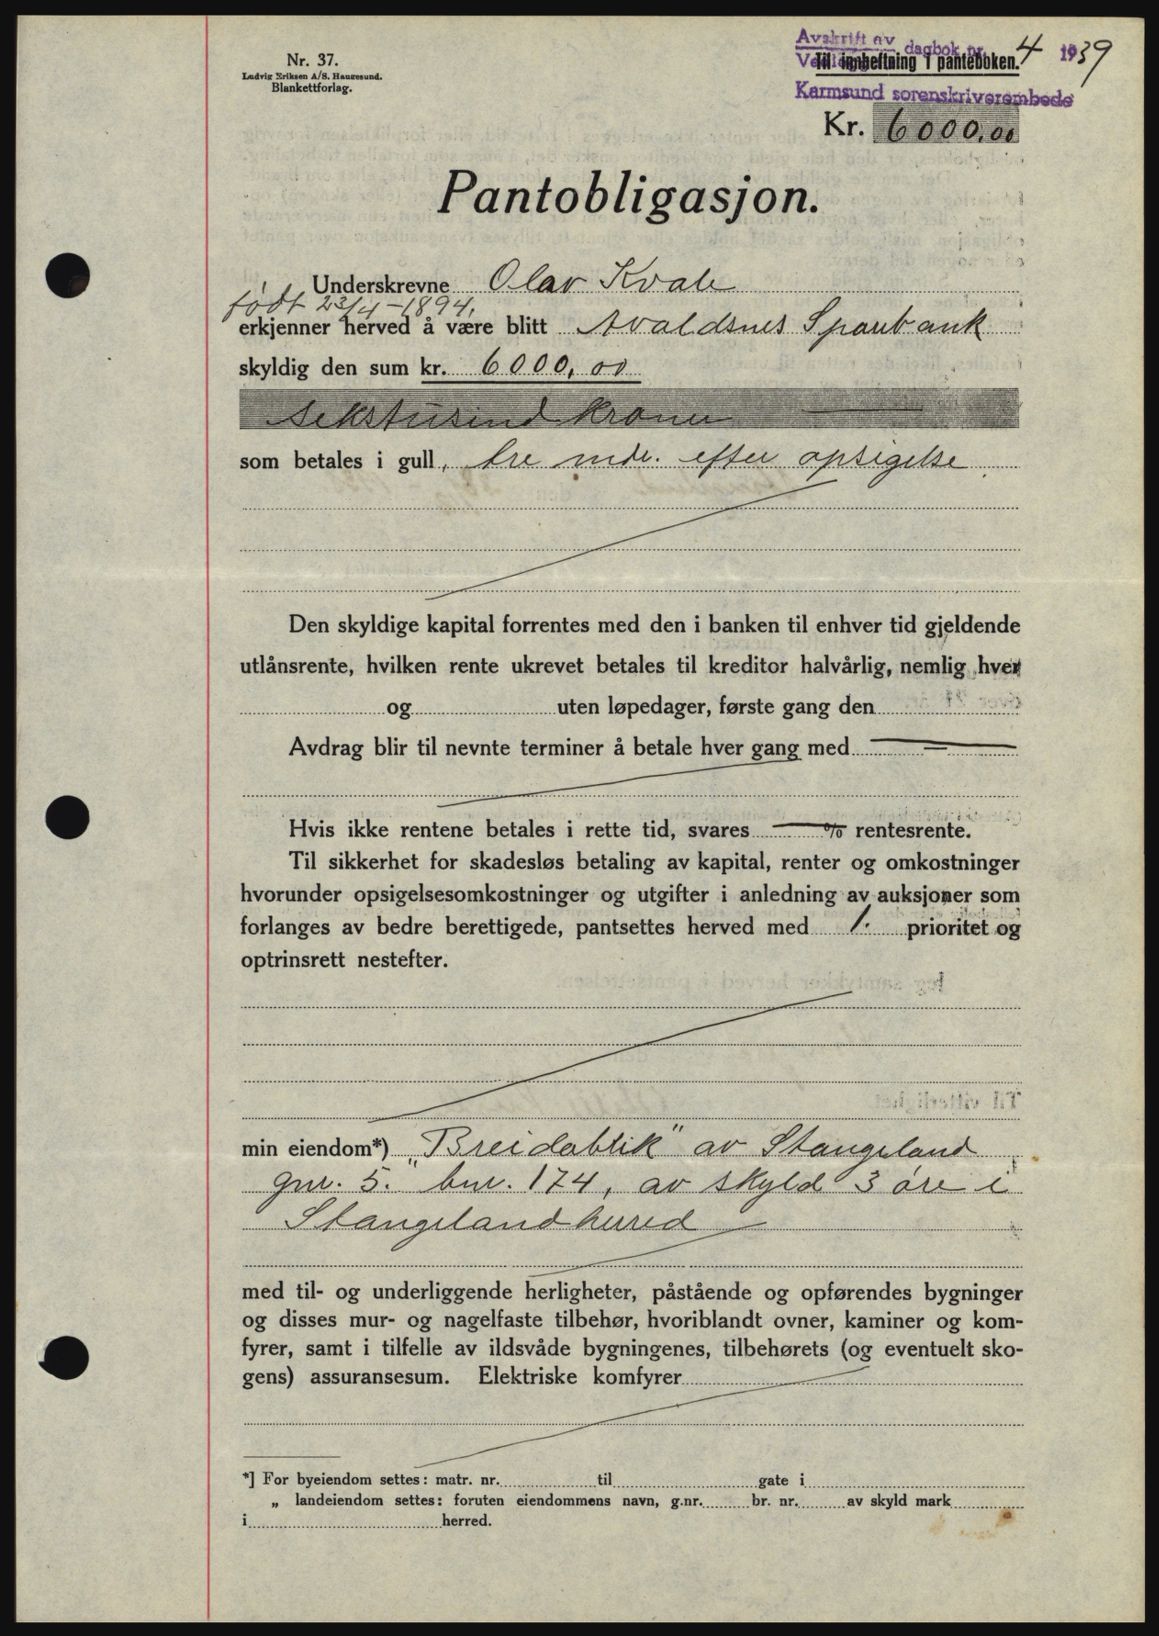 Nr. 37.
Ludvig Eriksen A/S. Haugesund.
Blankettforlag.
Avskrift av dagbok nr. 4 1939
Til innheftning i panteboken.
Karmsund sorenskriverembede
Kr. 6000,00
Pantobligasjon.
Underskrevne Olav Kvale
født 23/4-1894.
erkjenner herved å være blitt Avaldsnes Sparebank
skyldig den sum kr. 6000,00
sekstusind kroner
som betales i gull, tre mdr. efter opsigelse
Den skyldige kapital forrentes med den i banken til enhver tid gjeldende
utlånsrente, hvilken rente ukrevet betales til kreditor halvårlig, nemlig hver
og uten løpedager, første gang den
Avdrag blir til nevnte terminer å betale hver gang med —
Hvis ikke rentene betales i rette tid, svares — % rentesrente.
Til sikkerhet for skadesløs betaling av kapital, renter og omkostninger
hvorunder opsigelsesomkostninger og utgifter i anledning av auksjoner som
forlanges av bedre berettigede, pantsettes herved med 1. prioritet og
optrinsrett nestefter.
min eiendom*) "Breidablik" av Stangeland
gnr. 5. bnr. 174, av skyld 3 øre i
Stangeland herred
med til- og underliggende herligheter, påstående og opførendes bygninger
og disses mur- og nagelfaste tilbehør, hvoriblandt ovner, kaminer og kom-
fyrer, samt i tilfelle av ildsvåde bygningenes, tilbehørets (og eventuelt sko-
gens) assuransesum. Elektriske komfyrer
*] For byeiendom settes: matr. nr. til gate i
„ landeiendom settes: foruten eiendommens navn, g.nr. br. nr. av skyld mark
i herred.